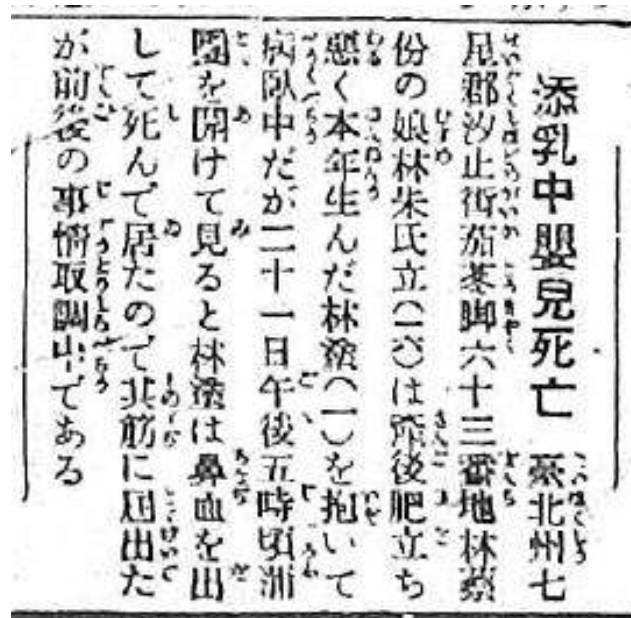 添乳中嬰兒死亡 臺北州七
星郡汐止街茄苳脚六十三番地林蔡
份の娘林朱氏立(一八)は産後肥立ち
惡く本年生んだ林塗(一)を抱いて
病臥中だが二十一日午後五時頃
を開けて見ると林塗は鼻血を出
して死んで居たので其筋に屆出た
が前後の事情取調中である